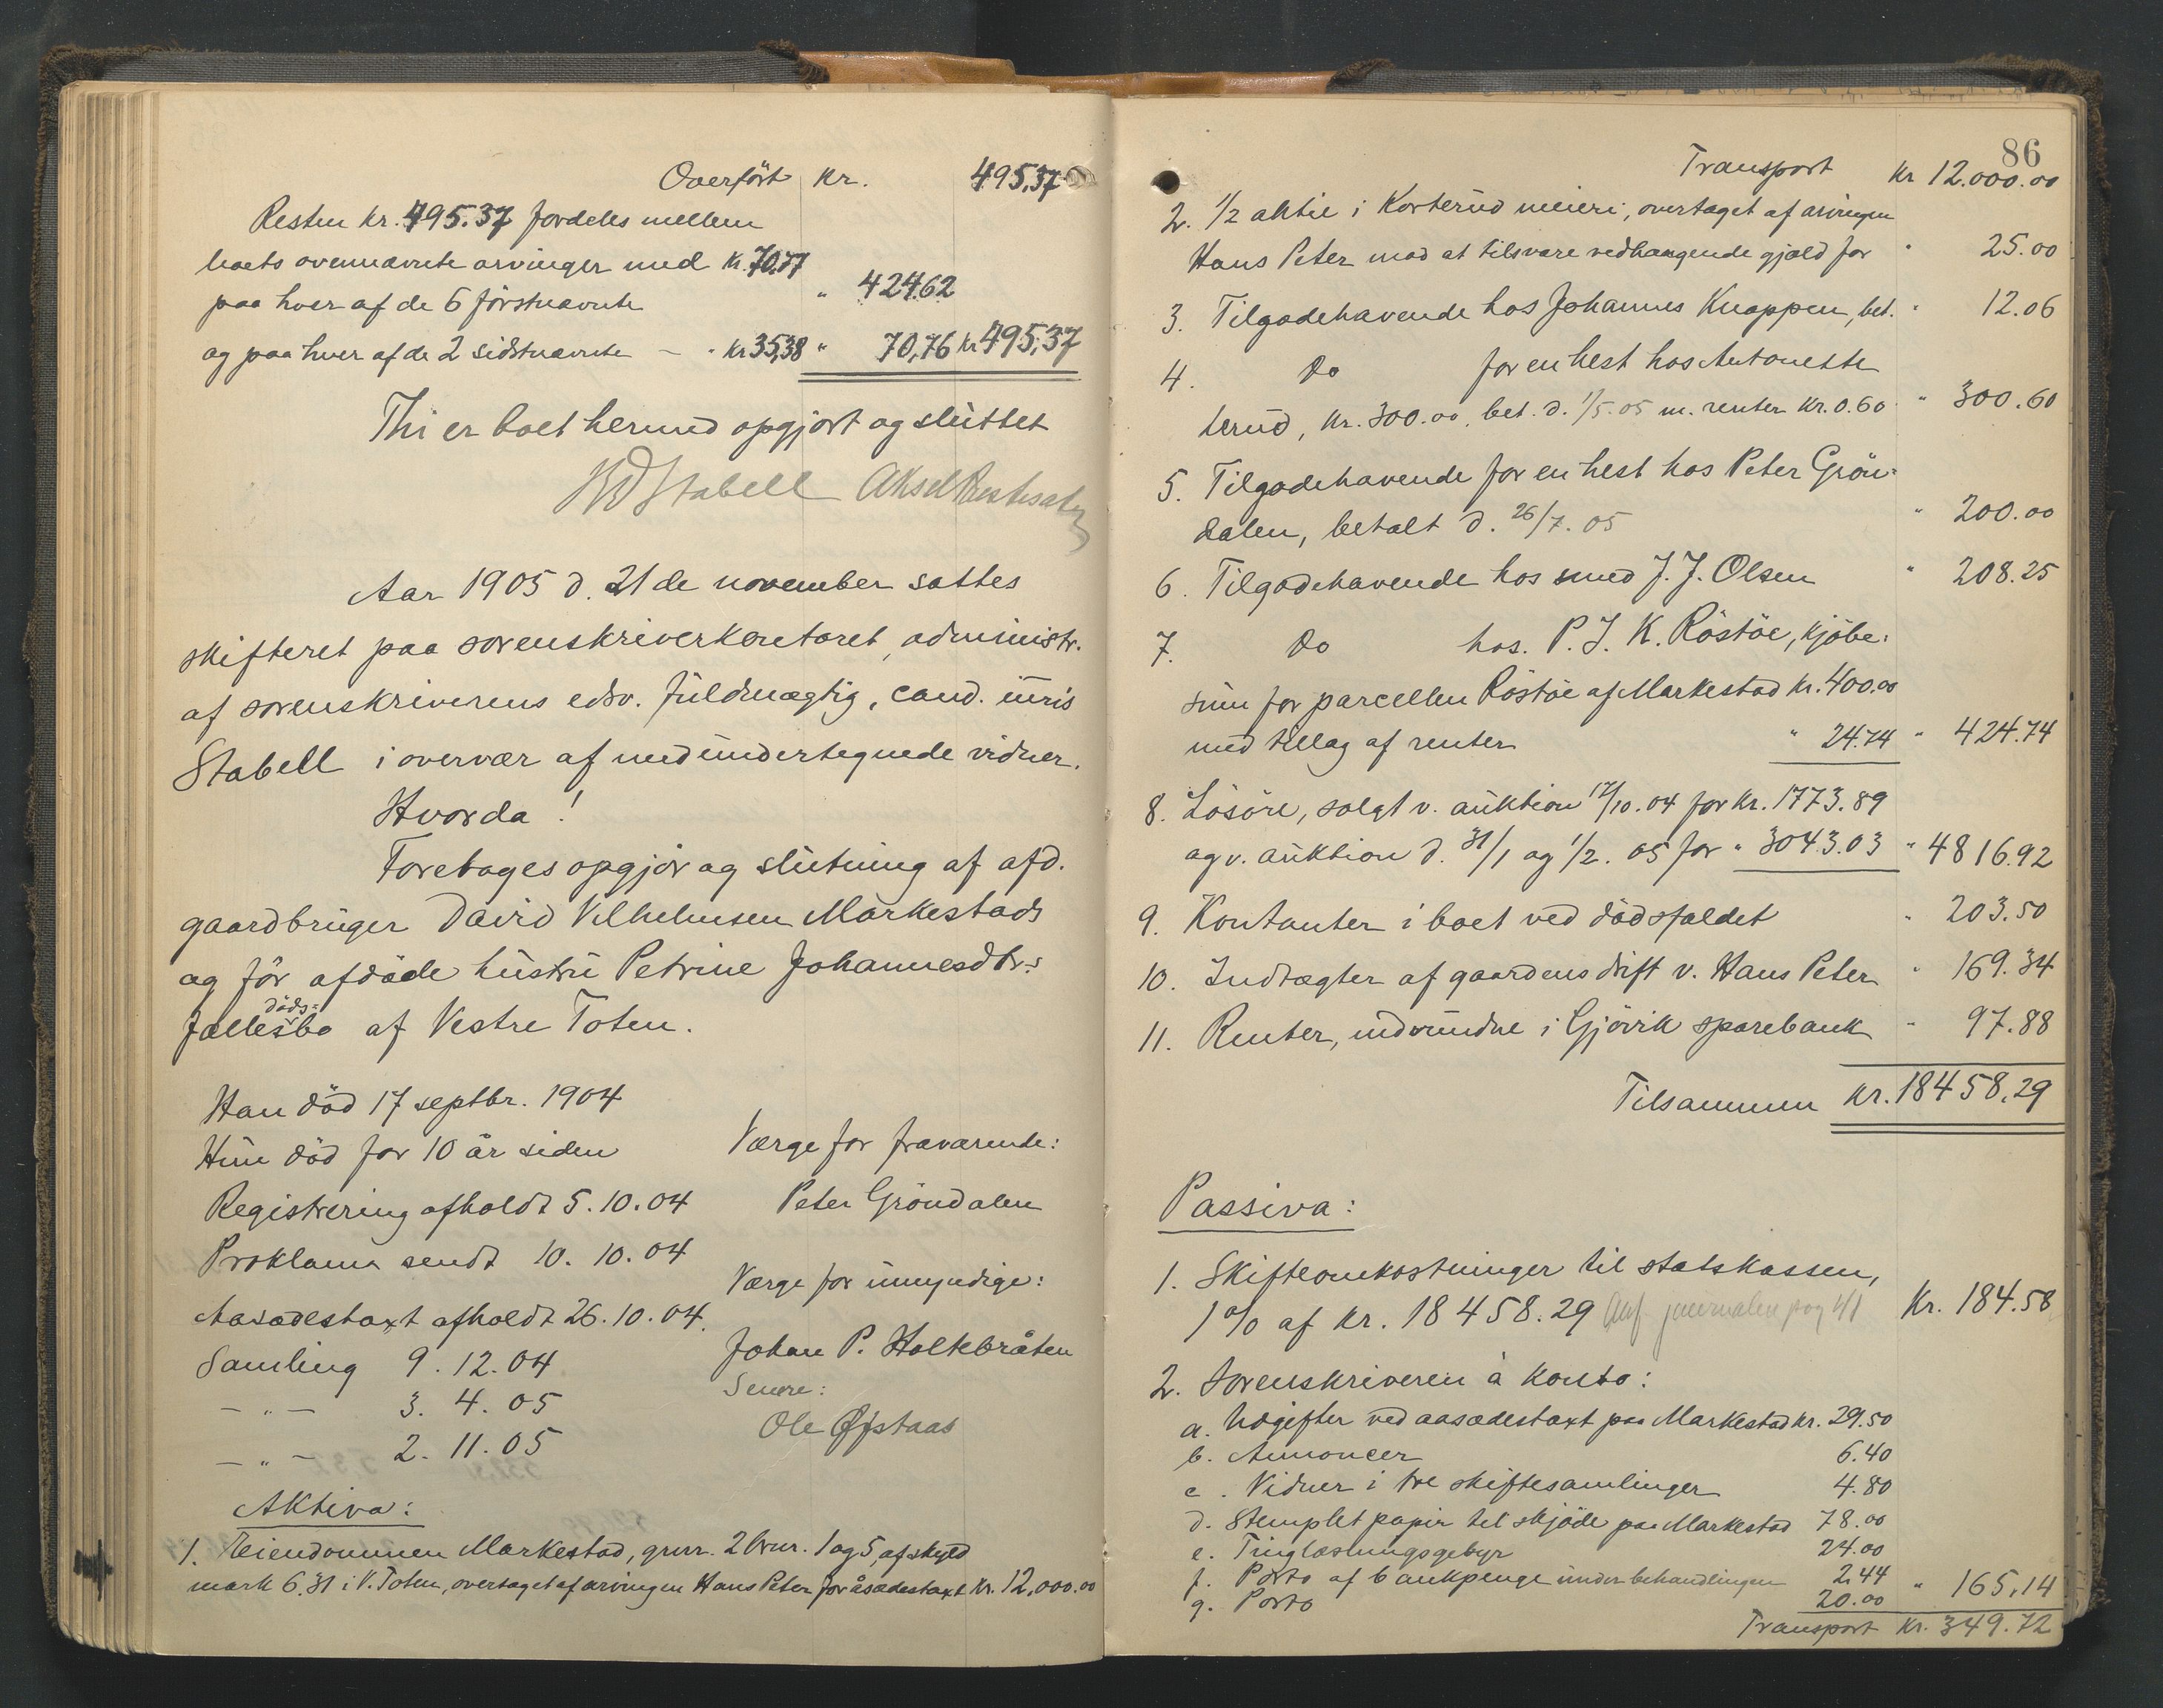 Overført kr. 495,37
Resten kr. 495.37 fordeles mellem
boets ovennævnte arvinger med kr. 70,77
paa hver af de 6 förstnævnte " 424.62
og paa hver af de 2 sidstnævnte - " kr 35,38 " 70,76 kr 495,37
Thi er boet hermed opgjort og sluttet
Stabell Aksel
Aar 1905 d. 21de november sattes
skifteret paa sorenskriverkontoret, administr.
af sorenskriverens edsv. fuldmægtig, cand. iuris
Stabell i overvær af medundertegnede vidner.
Hvorda!
Foretoges opgjör og slutning af afd.
gaardbruger David Vilhelmsen Markestads
og för afdöde hustru Petrine Johannesdtr.s
fællesdödsbo af Vestre Toten.
Han död 17 septbr. 1904
Hun död for 10 år siden
Registrering afholdt 5.10.04
Proklama sendt 10.10.04
Aasædestaxt afholdt 26.10.04.
Samling 9.12.04
- " - 3. 4. 05
- " - 2. 11. 05
Værge for fraværende:
Peter Gröndalen
Værge for umyndige:
Johan P. Holtebråten
Senere:
Ole Øfstaas
Aktiva:
1. Eiendommen Markestad, gnr. 2 brnr. 1 og 5, af skyld
mark 6.31 i V. Toten, overtaget af arvingen Hans Peter for åsædestaxt kr. 12,000.00
86
Transport kr 12.000.00
2. 1/2 aktie i Korterud meieri, overtaget af arvingen
Hans Peter mod at tilsvare vedhængende gjæld for " 25.00
3. Tilgodehavende hos Johannes Knappen, bet. " 12.06
4. Do for en hest hos Antonette
terud, kr. 300.00, bet. d. 1/5.05 m. renter kr. 0.60 " 300.60
5. Tilgodehavende for en hest hos Peter Grön-
dalen, betalt d. 26/7.05 " 200.00
6. Tilgodehavende hos smed J. J. Olsen " 208.25
7. Do hos P. J. K. Röstöe, kjöbe-
sum for parcellen Röstöe af Markestad kr. 400.00
med tillæg af renter " 24.74 " 424.74
8. Lösöre, solgt v. auktion 17/10.04 for kr. 1773.89
og v. auktion d. 31/1 og 1/2.05 for " 3043.03 " 4816.92
9. Kontanter i boet ved dödsfaldet " 203.50
10. Indtægter af gaardens drift v. Hans Peter " 169.34
11. Renter, indvundne i Gjövik sparebank " 97.88
Tilsammen kr. 18458.29
Passiva:
1. Skifteomkostninger til statskassen,
1% af kr. 18458.29 Anf. journalen pag 41 Kr. 184.58
2. Sorenskriveren à konto:
a. Udgifter ved aasædestaxt paa Markestad kr. 29.50
b. Annoncer 6.40
c. Vidner i tre skiftesamlinger 4.80
d. Stemplet papir til skjöde paa Markestad 78.00
e. Tinglæsningsgebyr 24.00
f. Porto af bankpenge under behandlingen 2.44
g. Porto 20.00 " 165.14
Transport kr. 349.72